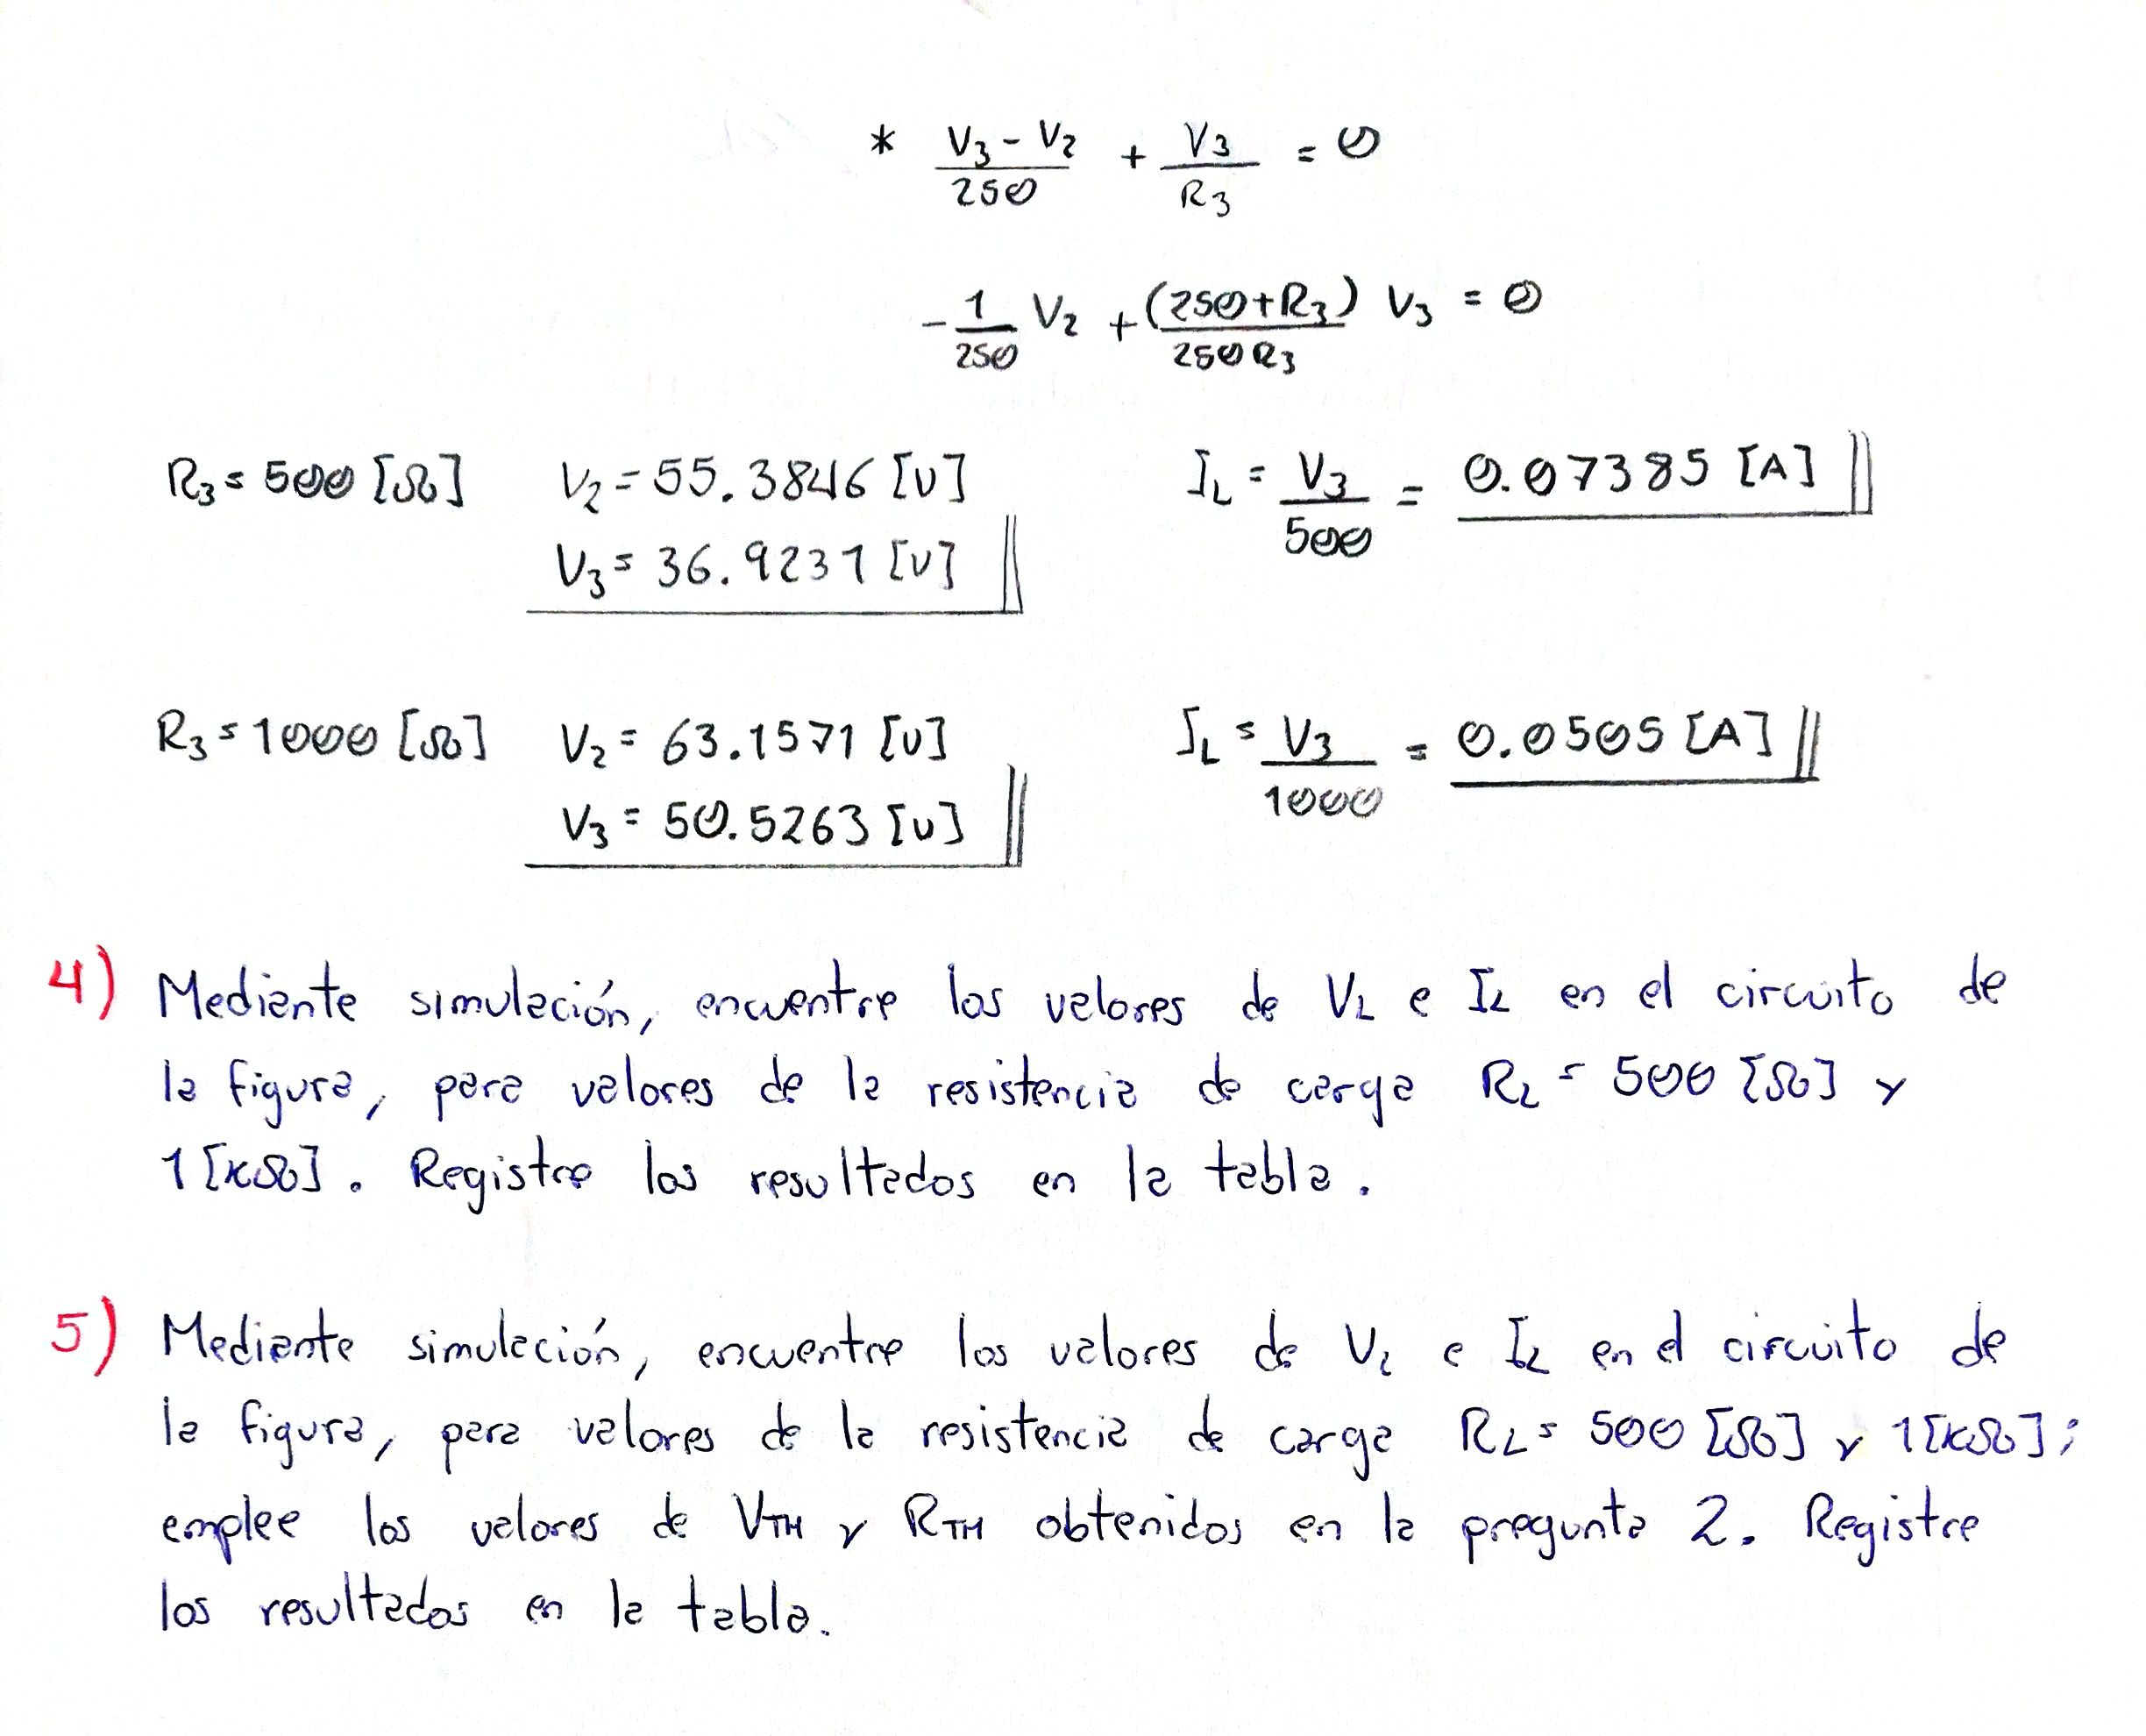 * (V3 - V2)/250 + V3/R3 = 0
-1/250 V2 + (250+R3)/250R3 V3 = 0
R3 = 500 [Ω] V2 = 55.3846 [V] IL = V3/500 = 0.07385 [A]
V3 = 36.9231 [V]
R3 = 1000 [Ω] V2 = 63.1571 [V] IL = V3/1000 = 0.0505 [A]
V3 = 50.5263 [V]
4) Mediante simulación, encuentre los valores de VL e IL en el circuito de
la figura, para valores de la resistencia de carga RL = 500 [Ω] y
1 [KΩ]. Registre los resultados en la tabla.
5) Mediante simulación, encuentre los valores de VL e IL en el circuito de
la figura, para valores de la resistencia de carga RL = 500 [Ω] y 1 [KΩ];
emplee los valores de VTH y RTH obtenidos en la pregunta 2. Registre
los resultados en la tabla.